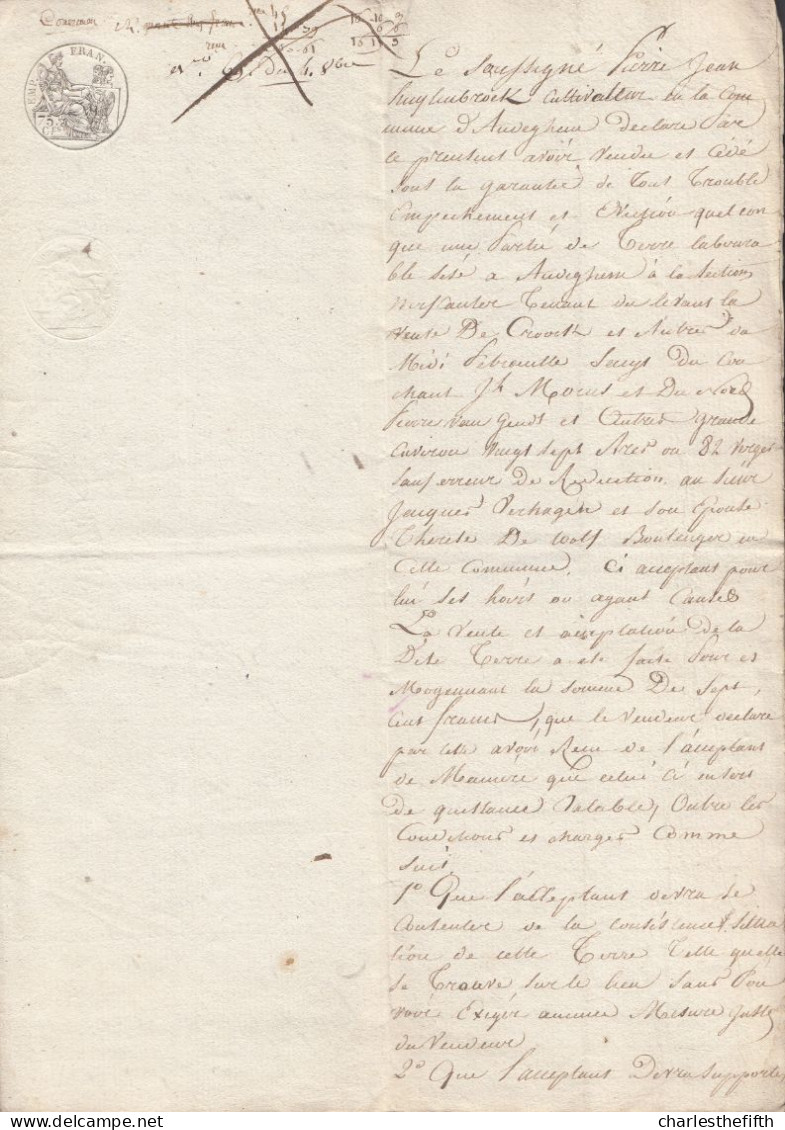 EMP. FRAN.
75
Le Soussigné Pierre Jean
huylenbroeck Cultivateur en la Com
mune d'Audeghem Declare Par
le present avoir Vendu et Cédé
sous la garantie de Tout Trouble
Empechement et Eviction quelcon
que une Partie de Terre laboura
ble sise a Audeghem à la Section
Tenant du levant la
Veuve De Croock et Autres du
Midi du Cou
chant Jh Moens et Du Nord
Pierre van Gendt et Autres grande
Environ Vingt Sept Ares ou 82 Verges
Sauf erreur De Reduction au Sieur
Jacques Verhagen et son Epouse
Therese De Wolf Boulenger en
Cette Commune. Ci acceptant pour
lui Ses hoirs ou ayant Causes
La Vente et acceptation de la
Dite Terre a eté faite Pour et
Moyennant la Somme De Sept
Cent francs, que le Vendeur declare
par cette avoir Recu de l'acceptant
de Maniere que celui Ci
de quittance Valable, Outre les
Conditions et charges Comme
Suit.
1º Que l'acceptant devra se
Contenter de la Consistence & Situa
tion de cette Terre Telle quelle
se Trouve sur le lieu sans Pou
voir Exigér aucune Mesure Juste
du Vendeur
2º Que l'acceptant Devra Supporter
charlesthefifth